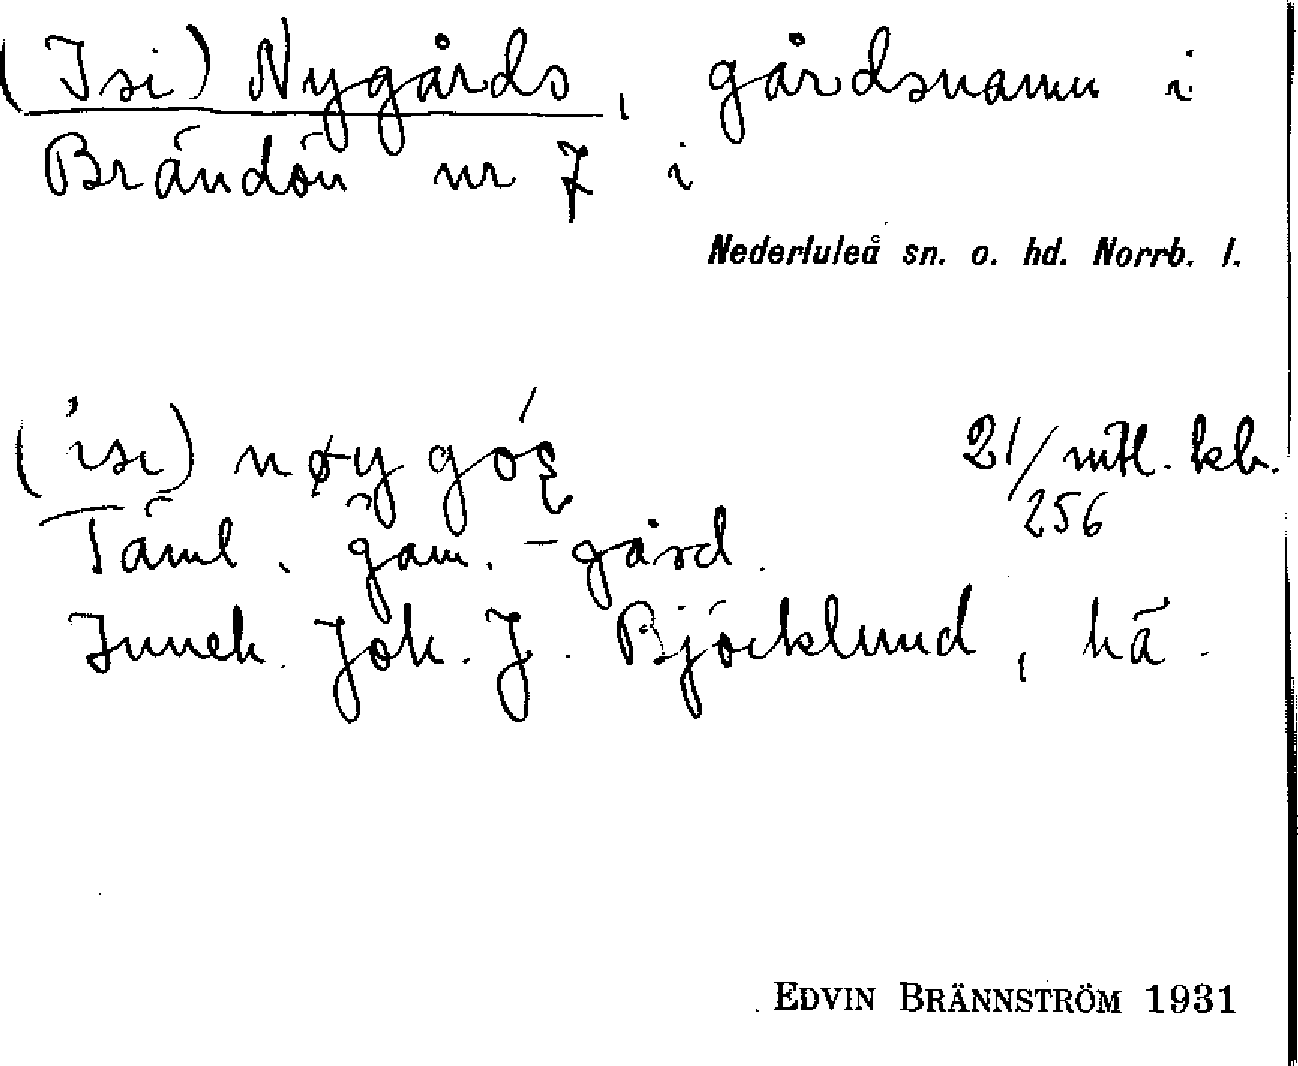 (Isi) Nygårds, gårdsnamn i
Brändön nr 7 i
Nederluleå sn. o. hd. Norrb. l.
('isi) nøy góş 21/256 mtl. kb.
Täml. gam. -gård.
Inneh. Joh. J. Björklund, hä.
EDVIN BRÄNNSTRÖM 1931